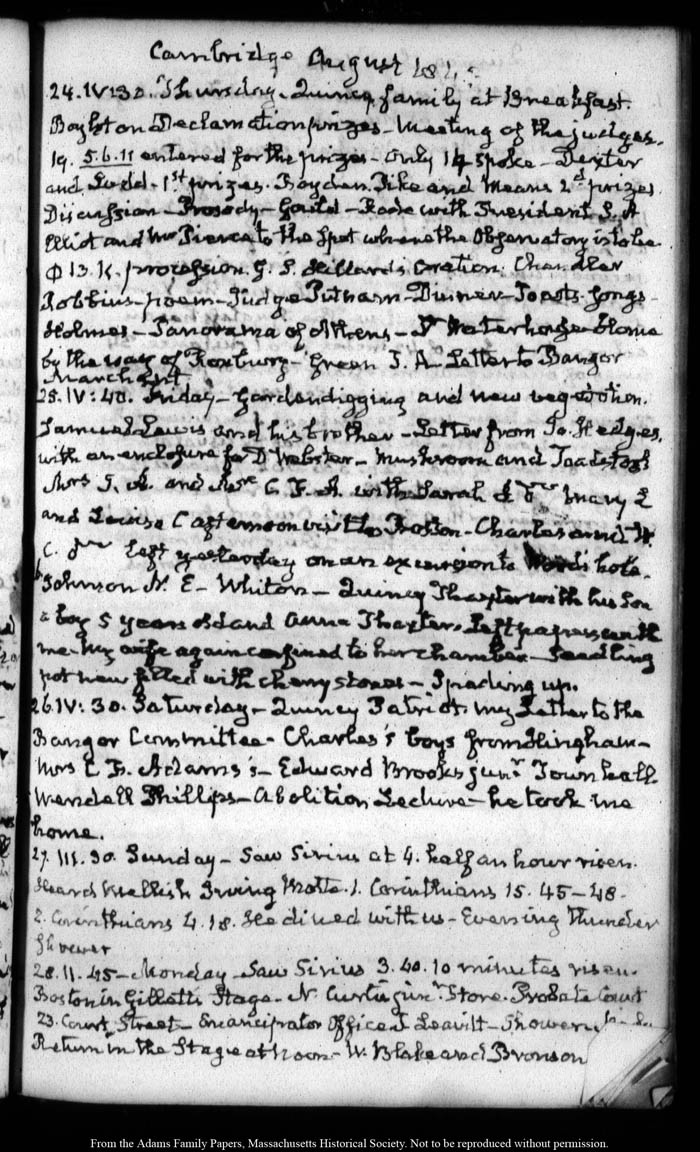 Cambridge August 184
24. IV:30. Thursday. Quincy family at Breakfast.
Boylston Declamation prizes - Meeting of the judges.
19. 5.6.11 entered for the prizes - only 14 spoke - Dexter
and Todd - 1st prizes. Boyden Pike and Means 2d prizes
Discussion - Prosody - Gould - Rode with President S. A
Elliot and Mr Pierce to the Spot where the Observatory is to be
Φ B. K. procession. G. S. Hillard's oration. Chandler
Robbins - poem - Judge Putnam - Dinner - Toasts. Songs -
Holmes - Panorama of Athens - Dr Waterhouse - Home
by the way of Roxbury - Green J. A. Letter to Bangor
March and
25. IV:40. Friday - Garden digging and new vegetation.
Samuel Lewis and his brother - Letter from Is. Hedges,
with an enclosure for D Webster - Mushroom and Toadstool
Mrs J. A. and Mrs C. F. A. with Sarah Mary L
and Louisa C afternoon visit to Boston - Charles and
C. left yesterday on an excursion to Wood's hole.
Johnson N. E - Whiton - Quincy Thaxter with his Son
a boy 5 years old and Anna Thaxter. Left papers with
me - My wife again confined to her chamber - Seedling
pot new filled with cherry stones - Spading up.
26. IV:30. Saturday - Quincy Patriot. my Letter to the
Bangor Committee - Charles's boys from Hingham -
Mrs C F. Adams's - Edward Brooks junr Town hall
Wendell Phillips - Abolition Lecture - he took me
home.
27. III.30. Sunday - Saw Sirius at 4. half an hour risen.
Heard Mellish Irving Motte. 1. Corinthians 15. 45-48.
2. Corinthians 4.18. He dined with us - Evening Thunder
Shower
28. II. 45 - Monday - Saw Sirius 3.40. 10 minutes risen.
Boston in Gillett's Stage - N. Curtis junr Store. Probate Court
23. Court Street - Emancipator Office J Leavitt - Shower
Return in the Stage at Noon - W. Blake and Bronson
From the Adams Family Papers, Massachusetts Historical Society. Not to be reproduced without permission.